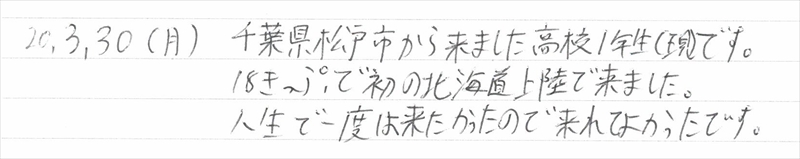 20.3.30(月) 千葉県松戸市から来ました高校1年生(現)です。
18きっぷで初の北海道上陸で来ました。
人生で一度は来たかったので来れてよかったです。